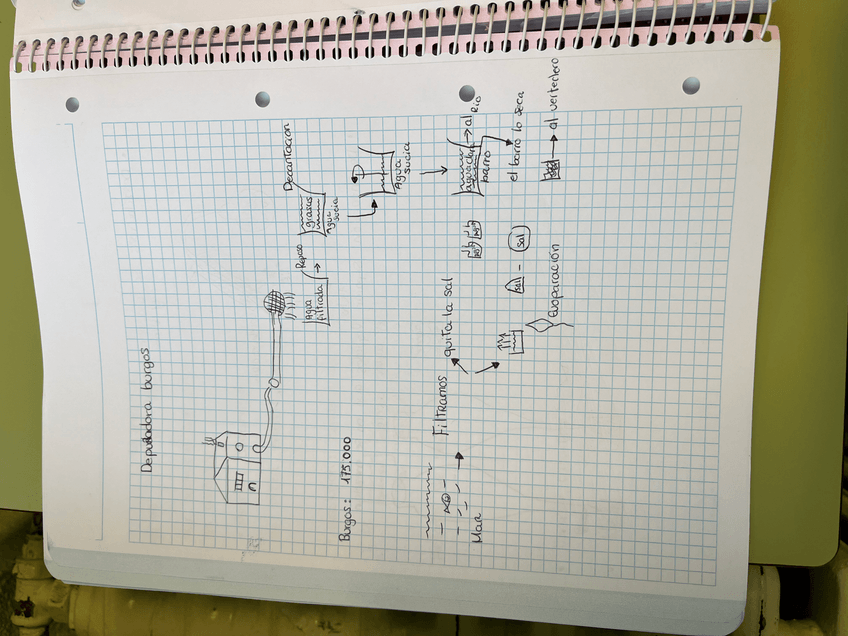 Depuradora burgos
Agua filtrada
Reposo
grasas
Agua sucia
Decantación
Agua sucia
agua clara
barro
al Río
el barro lo seca
al vertedero
Burgos: 175.000
Mar
Filtramos
quita la sal
Evaporación
sal
sal